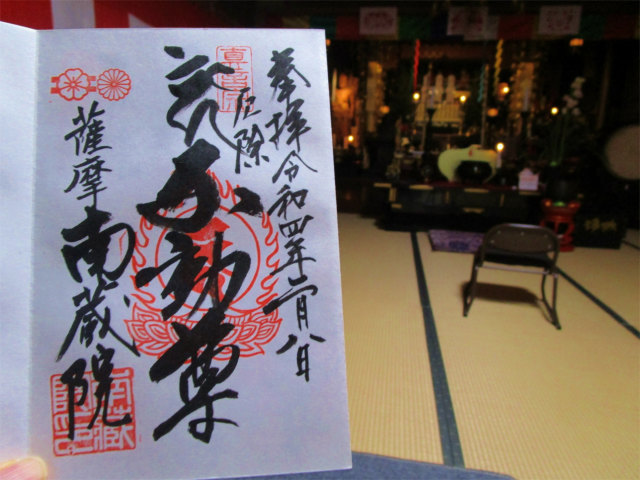 奉拝 令和四年二月八日
厄除
不動尊
薩摩
南蔵院